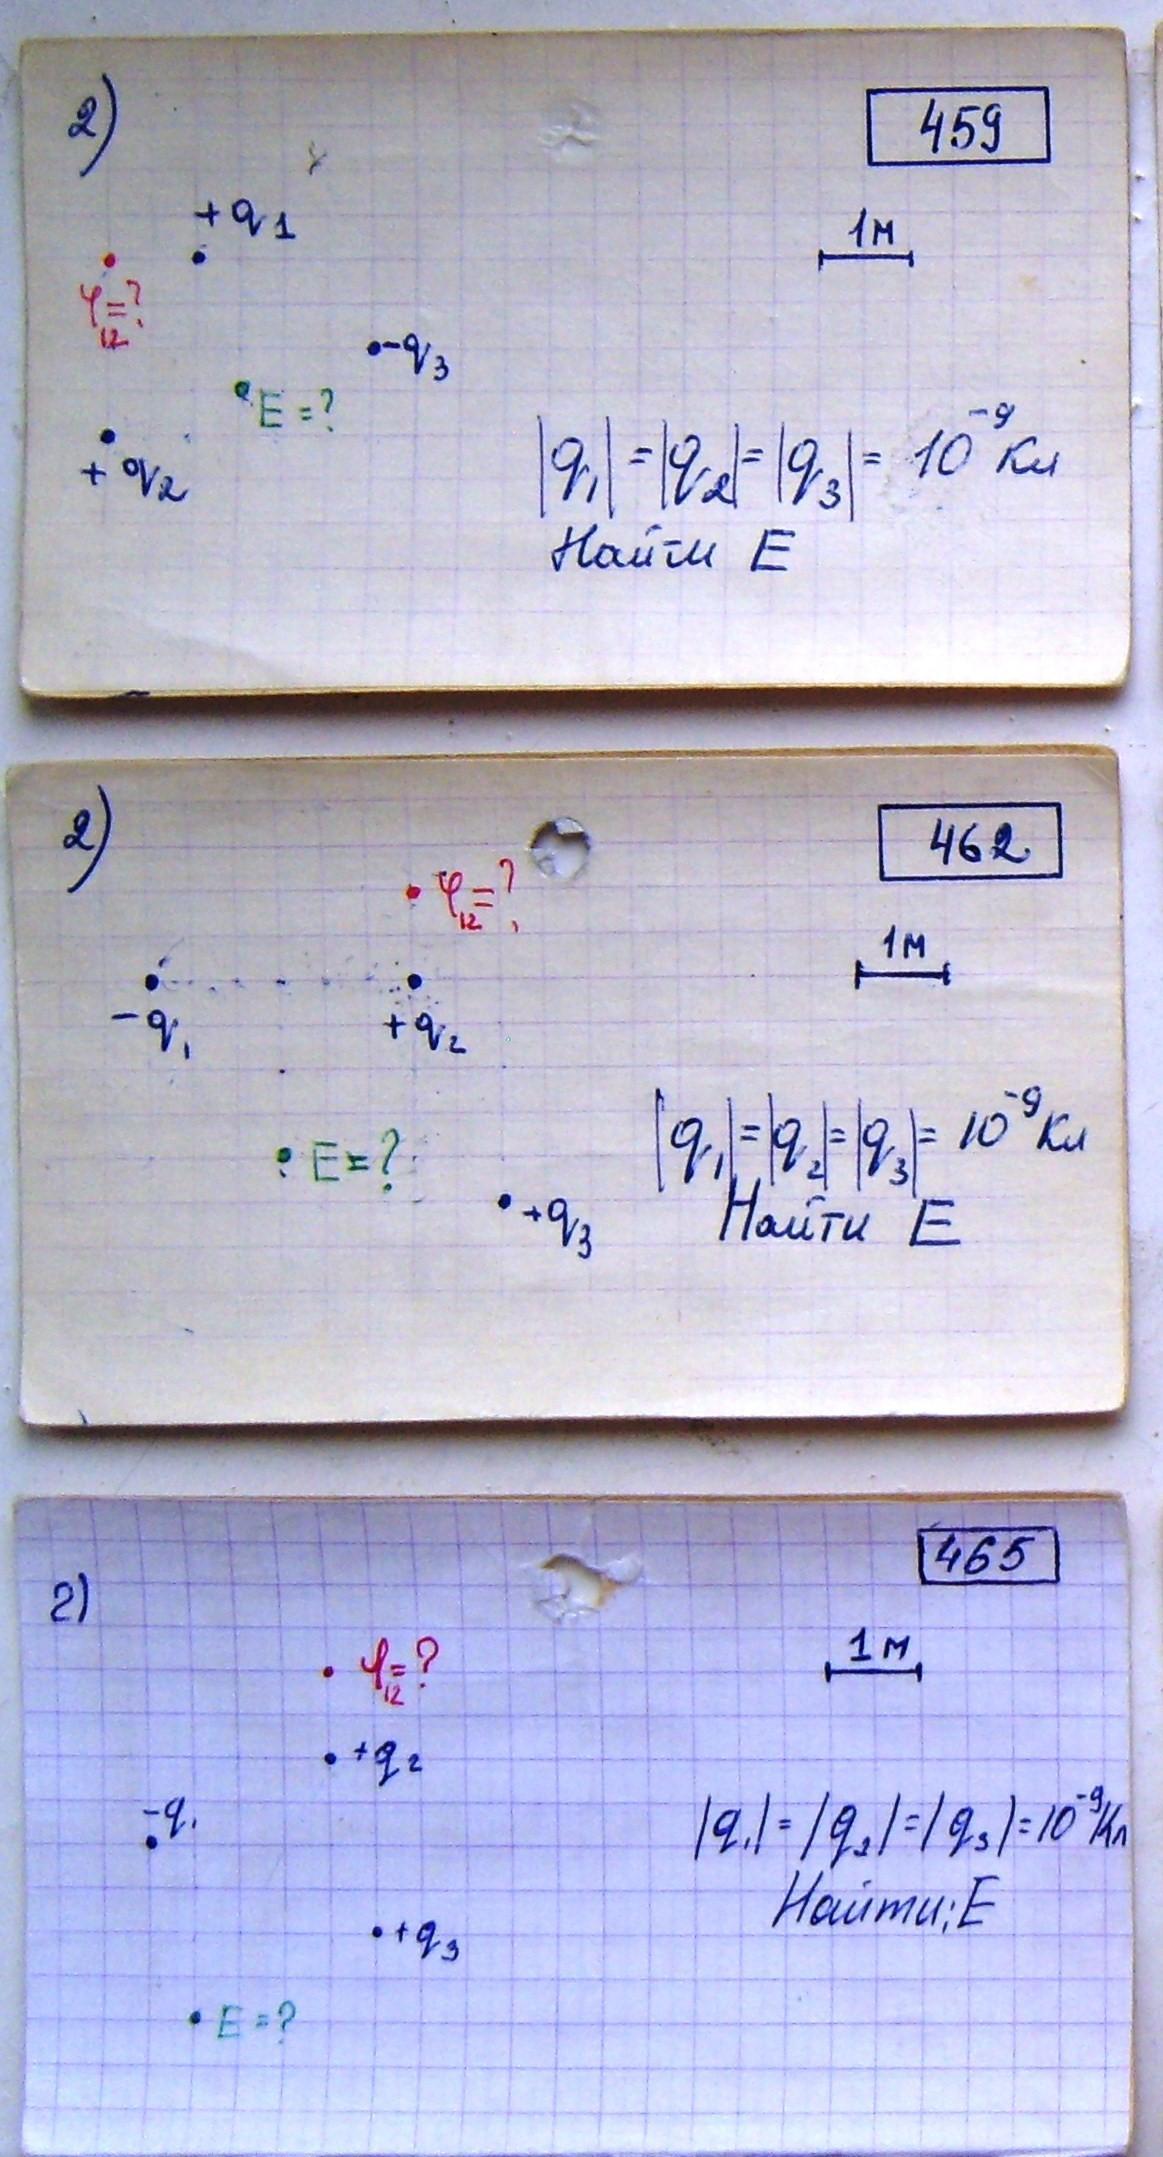 2)
459
+q₁
1м
φ₁₂=?
-q₃
E=?
+q₂
|q₁|=|q₂|=|q₃|= 10⁻⁹ Кл
Найти E
2)
462
φ₁₂=?
1м
-q₁
+q₂
|q₁|=|q₂|=|q₃|= 10⁻⁹ Кл
E=?
+q₃
Найти E
2)
465
φ₁₂=?
1м
+q₂
-q₁
|q₁|=|q₂|=|q₃|=10⁻⁹Кл
Найти: E
+q₃
E=?